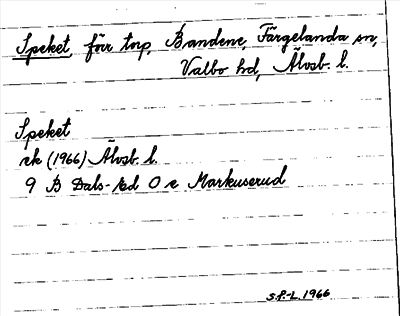 Speket, förr tnp, Bandene, Färgelanda sn,
Valbo hd, Älvsb. l.
Speket
ek (1966) Älvsb. l.
9 B Dals-Ed O e Markuserud
S.P.-L. 1966